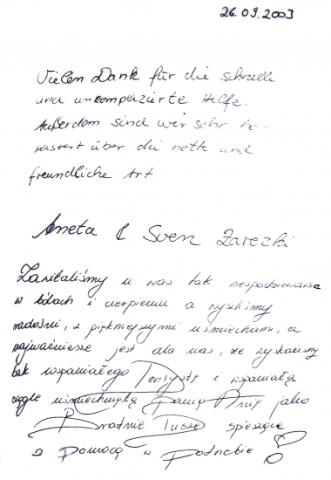 26.09.2003
Vielen Dank für die schnelle
und unkomplizierte Hilfe.
Außerdem sind wir sehr be-
geistert über die nette und
freundliche Art
Aneta & Sven Zarezki
Zawitaliśmy u nas tak niespodziewanie
w bólach i cierpieniu a wyszliśmy
radośni, z piękniejszymi uśmiechami, a
najważniejsze jest dla nas, że zyskaliśmy
tak wspaniałego Dentystę i wspaniałą
ciągle uśmiechniętą Panią Anię jako
Bratnie Dusze spieszące
z Pomocą w Potrzebie!